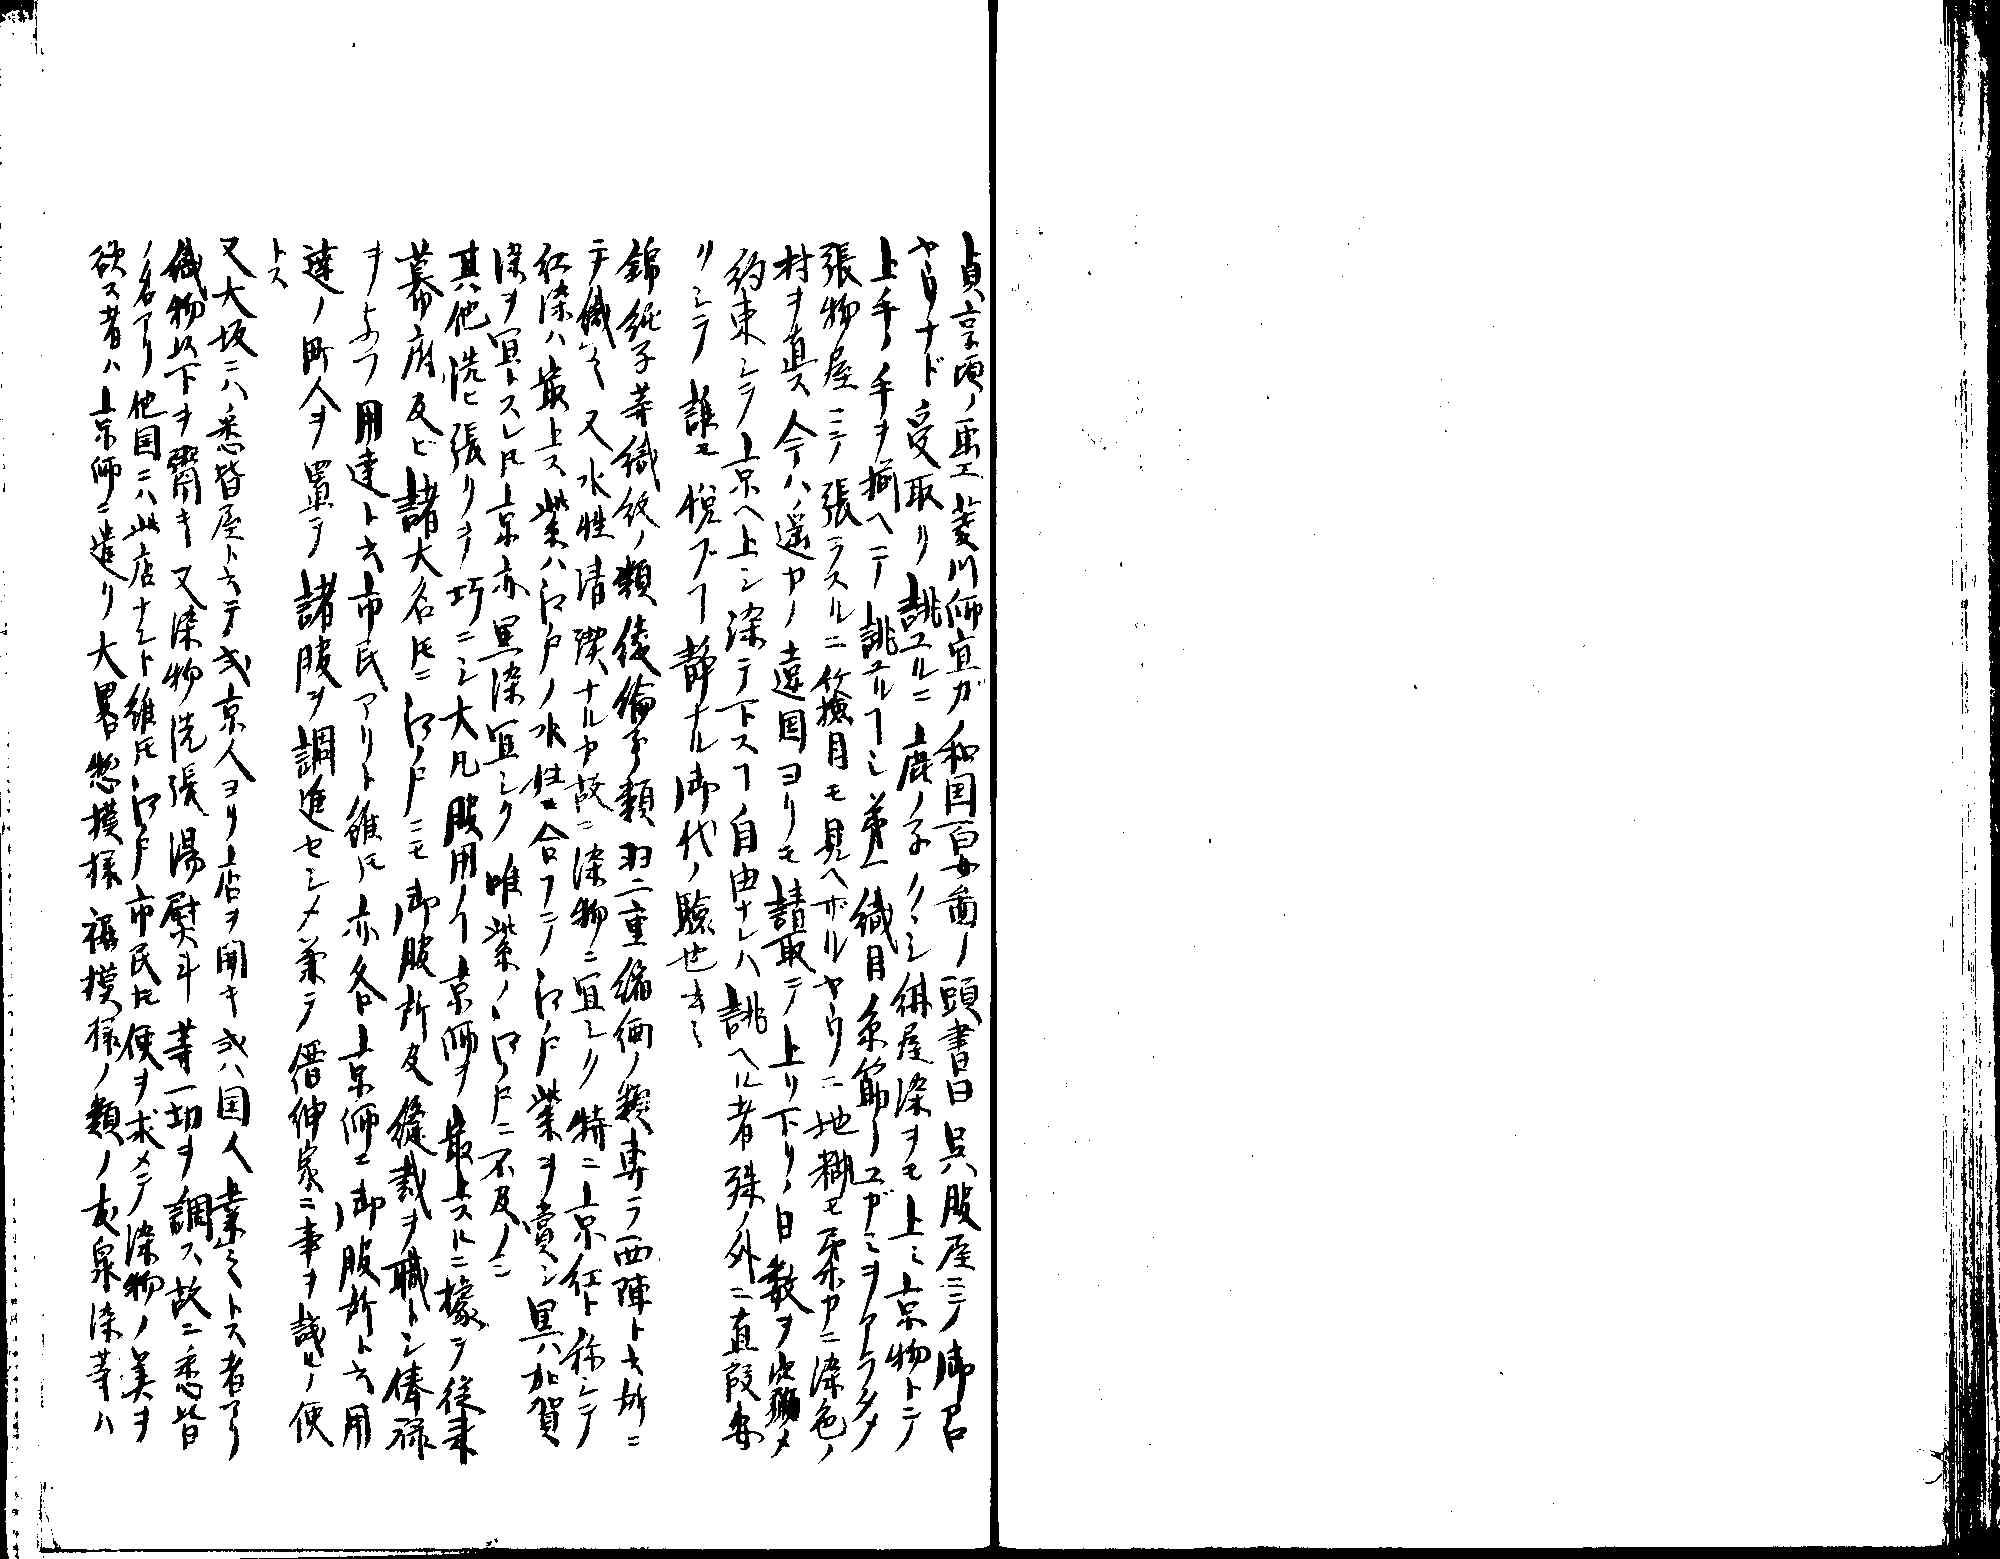 貞享頃ノ画工菱川師宣ガ和国百女ノ頭書曰呉服屋ニテ御召
ヤウナド受取リ誂ユルニ鹿ノ子ノクシ俳屋染ヲモ上ミ京物トテ
上手ノ手ヲ揃ヘテ誂ユルヿシ第一織目糸筋ノユガミヲアラタメ
張物屋ニテ張ラスルニ竹検目モ見ヘザルヤウニ地糊モ柔カニ染色ノ
村ヲ直ス今ハ遥カノ遠国ヨリモ請取テ上リ下リノ日数ヲ定メ
約束シテ京ヘ上シ染テ下スヿ自由ナレハ誂ヘル者殊ノ外ニ直段安
リシテ誰モ悦ブヿ静ナル御代ノ驗也云々
錦純子等織紋ノ類綾綸子類羽二重縮緬ノ類専ラ西陣ト云所ニ
テ織之又水性清潔ナルカ故ニ染物ニ宜シク特ニ京紅ト称シテ
紅染ハ最上ス紫ハ江戸ノ水性ニ合フテ江戸紫ヲ賞シ黒ハ加賀
染ヲ宜トスレ𪜈京亦黒染宜シク唯紫ノミ江戸ニ不及ノミ
其他洗ヒ張リヲ巧ニシ大凡服用ノヿ京師ヲ最上スルニ據テ従来
幕府及ビ諸大名𪜈ニ江戸ニモ御服所及縫裁ヲ職トシ俸禄
ヲ与フ用達ト云市民アリト雖𪜈亦各京師ニ御服所ト云用
達ノ町人ヲ置テ諸服ヲ調進セシメ兼テ縉紳家ニ事ヲ議ルノ便
トス
又大坂ニハ悉皆屋ト云テ或京人ヨリ店ヲ開キ或ハ国人業之トス者アリ
織物以下ヲ齎キ又染物洗張湯熨斗等一切ヲ調ス故ニ悉皆
ノ名アリ他国ニハ此店ナシト雖𪜈江戸市民𪜈便ヲ求メテ染物ノ美ヲ
欲ス者ハ京師ニ造リ大畧惣模様裾模様ノ類ノ友泉染等ハ